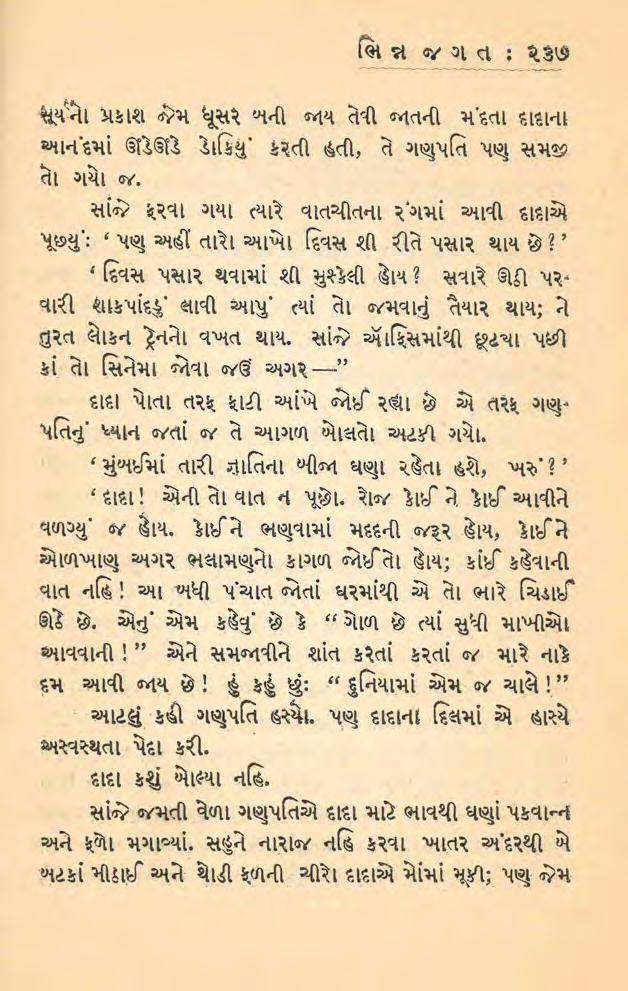 ભિન્ન જગત : ૨૩૭
સૂર્યનો પ્રકાશ જેમ ધૂસર બની જાય તેવી જાતની મંદતા દાદાના
આનંદમાં ઊંડેઊંડે ડોકિયું કરતી હતી, તે ગણપતિ પણ સમજી
તો ગયો જ.
સાંજે ફરવા ગયા ત્યારે વાતચીતના રંગમાં આવી દાદાએ
પૂછ્યું: ‘ પણ અહીં તારો આખો દિવસ શી રીતે પસાર થાય છે ? ’
‘ દિવસ પસાર થવામાં શી મુશ્કેલી હોય ? સવારે ઊઠી પર-
વારી શાકપાંદડું લાવી આપું ત્યાં તો જમવાનું તૈયાર થાય; ને
તુરત લોકન ટ્રેનનો વખત થાય. સાંજે ઑફિસમાંથી છૂટ્યા પછી
કાં તો સિનેમા જોવા જઉં અગર —”
દાદા પોતા તરફ ફાટી આંખે જોઈ રહ્યા છે એ તરફ ગણ-
પતિનું ધ્યાન જતાં જ તે આગળ બોલતો અટકી ગયો.
‘ મુંબઈમાં તારી જ્ઞાતિના બીજા ઘણા રહેતા હશે, ખરું ? ’
‘ દાદા ! એની તો વાત ન પૂછો. રોજ કોઈ ને કોઈ આવીને
વળગ્યું જ હોય. કોઈને ભણવામાં મદદની જરૂર હોય, કોઈને
ઓળખાણ અગર ભલામણનો કાગળ જોઈતો હોય; કાંઈ કહેવાની
વાત નહિ ! આ બધી પંચાત જોતાં ઘરમાંથી એ તો ભારે ચિડાઈ
ઊઠે છે. એનું એમ કહેવું છે કે “ ગોળ છે ત્યાં સુધી માખીઓ
આવવાની ! ” એને સમજાવીને શાંત કરતાં કરતાં જ મારે નાકે
દમ આવી જાય છે ! હું કહું છું: “ દુનિયામાં એમ જ ચાલે ! ”
આટલું કહી ગણપતિ હસ્યો. પણ દાદાના દિલમાં એ હાસ્યે
અસ્વસ્થતા પેદા કરી.
દાદા કશું બોલ્યા નહિ.
સાંજે જમતી વેળા ગણપતિએ દાદા માટે ભાવથી ઘણાં પકવાન્ન
અને ફળો મગાવ્યાં. સહુને નારાજ નહિ કરવા ખાતર અંદરથી બે
બટકાં મીઠાઈ અને થોડી ફળની ચીરો દાદાએ મોંમાં મૂકી; પણ જેમ